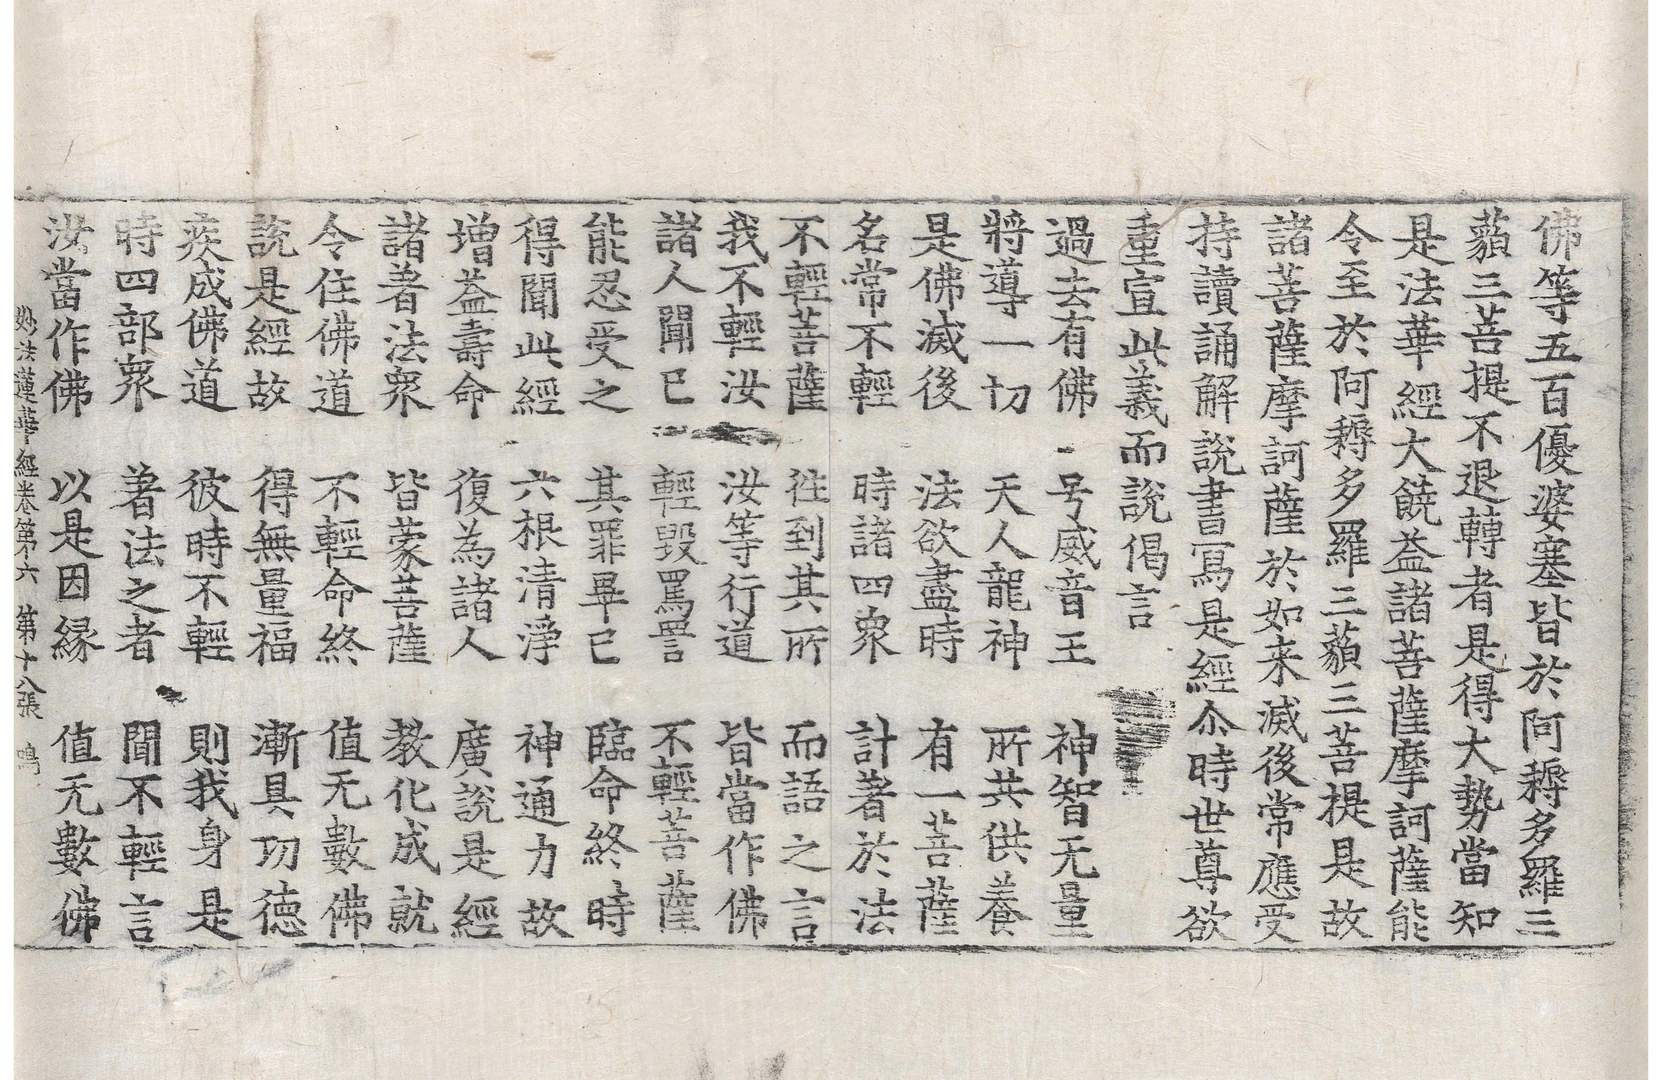 佛等五百優婆塞皆於阿耨多羅三
藐三菩提不退轉者是得大勢當知
是法華經大饒益諸菩薩摩訶薩能
令至於阿耨多羅三藐三菩提是故
諸菩薩摩訶薩於如来滅後常應受
持讀誦解說書寫是經尒時世尊欲
重宣此義而說偈言
過去有佛 号威音王 神智无量
將導一切 天人龍神 所共供養
是佛滅後 法欲盡時 有一菩薩
名常不輕 時諸四衆 計著於法
不輕菩薩 往到其所 而語之言
我不輕汝 汝等行道 皆當作佛
諸人聞已 輕毀罵詈 不輕菩薩
能忍受之 其罪畢已 臨命終時
得聞此經 六根清淨 神通力故
增益壽命 復為諸人 廣說是經
諸著法衆 皆蒙菩薩 教化成就
令住佛道 不輕命終 值无數佛
說是經故 得無量福 漸具功德
疾成佛道 彼時不輕 則我身是
時四部衆 著法之者 聞不輕言
汝當作佛 以是因縁 值无數佛
妙法蓮華經卷第六 第十八張 鳴